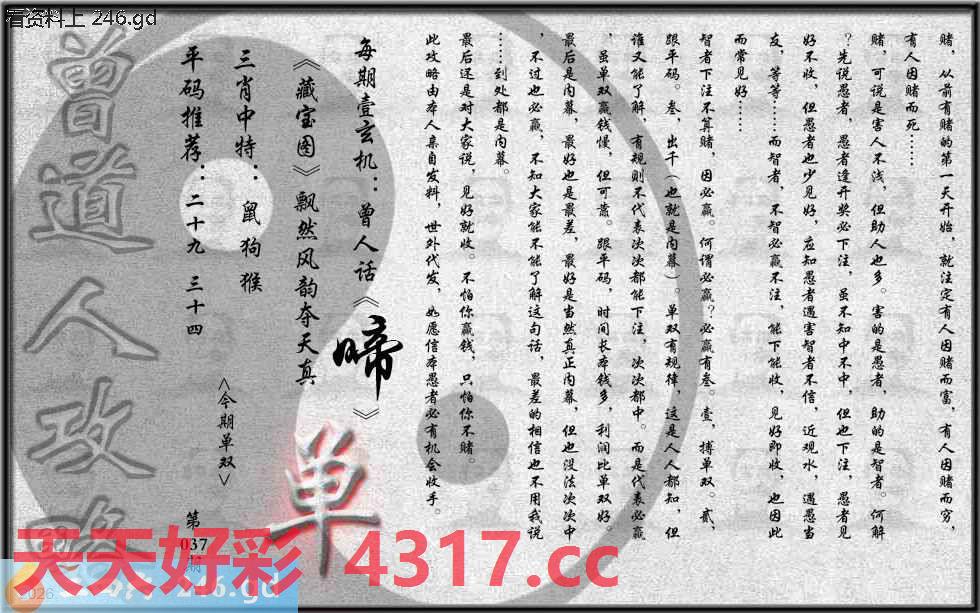 看资料上 246.gd
赌，从前有赌的第一天开始，就注定有人因赌而富，有人因赌而穷，
有人因赌而死……
赌，可说是害人不浅，但助人也多。害的是愚者，助的是智者。何解
？先说愚者，愚者逢开奖必下注，虽不知中不中，但也下注，愚者见
好不收，但愚者也少见好，应知愚者遇害智者不信，近观水，遇愚当
友，等等……而智者，不智必赢不注，能下能收，见好即收，也因此
而常见好……
智者下注不算赌，因必赢。何谓必赢？必赢有叁。壹，搏单双。贰，
跟平码。叁，出千（也就是内幕）。单双有规律，这是人人都知，但
谁又能了解，有规则不代表次次都能下注，次次都中。而是代表必赢
，虽单双赢钱慢，但可靠。跟平码，时间长本钱多，利润比单双好。
最后是内幕，最好也是最差，最好是当然真正内幕，但也没法次次中
，不过也必赢，不知大家能不能了解这句话，最差的相信也不用我说
……到处都是内幕。
最后还是对大家说，见好就收。不怕你赢钱，只怕你不赌。
此攻略由本人亲自发料，世外代发，如愿信本愚者必有机会收手。
每期壹玄机：曾人话《啼》
《藏宝图》飘然风韵夺天真
三肖中特：鼠 狗 猴
<今期单双>
单
平码推荐：二十九 三十四
第
037
期
曾道人攻略
天天好彩 4317.cc
246.gd
2026